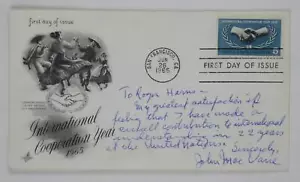 first day of issue
INTERNATIONAL COOPERATION YEAR
SAN FRANCISCO, CA.
JUN
26
1965
FIRST DAY OF ISSUE
International
Cooperation Year
1965
To Roger Harris -
My greatest satisfaction is
feeling that I have made a
small contribution to international
understanding in 22 years
at the United Nations.
Sincerely,
John Mac Vane